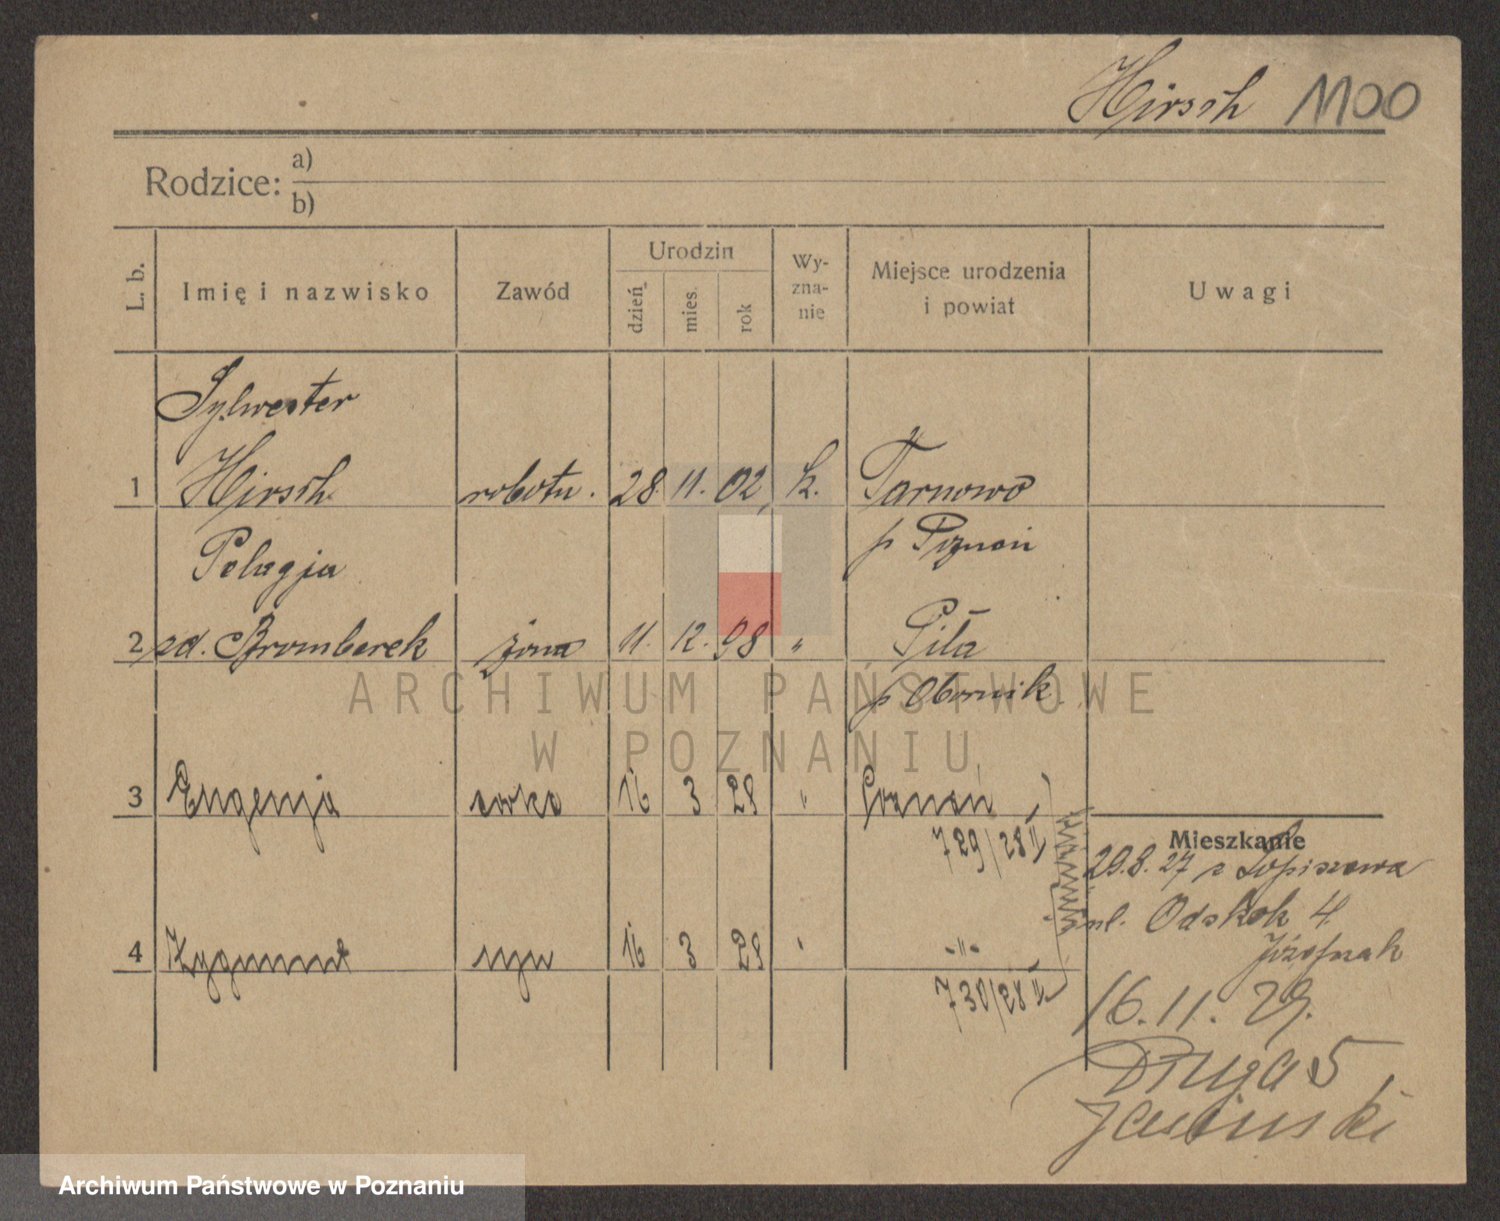 Hirsch 1100
Rodzice: a)
b)
L. b. Imię i nazwisko Zawód Urodzin dzień mies. rok Wy-zna-nie Miejsce urodzenia i powiat Uwagi
Sylwester
1 Hirsch robotn. 28. 11. 02. k. Tarnowo
p Poznań
Pelagja
2 zd. Bromberek żona 11. 12. 98 " Piła
p Obornik
ARCHIWUM PAŃSTWOWE
W POZNANIU
3 Eugenja córka 16 3 28 " Poznań
729/28 II
Mieszkanie
29.8.27 z Łopiszewa
ul. Odskok 4
Józefniak
4 Zygmunt syn 16 3 28 " -"-
730/28 II
16. 11. 29.
Długa 5
Jasiński
Archiwum Państwowe w Poznaniu